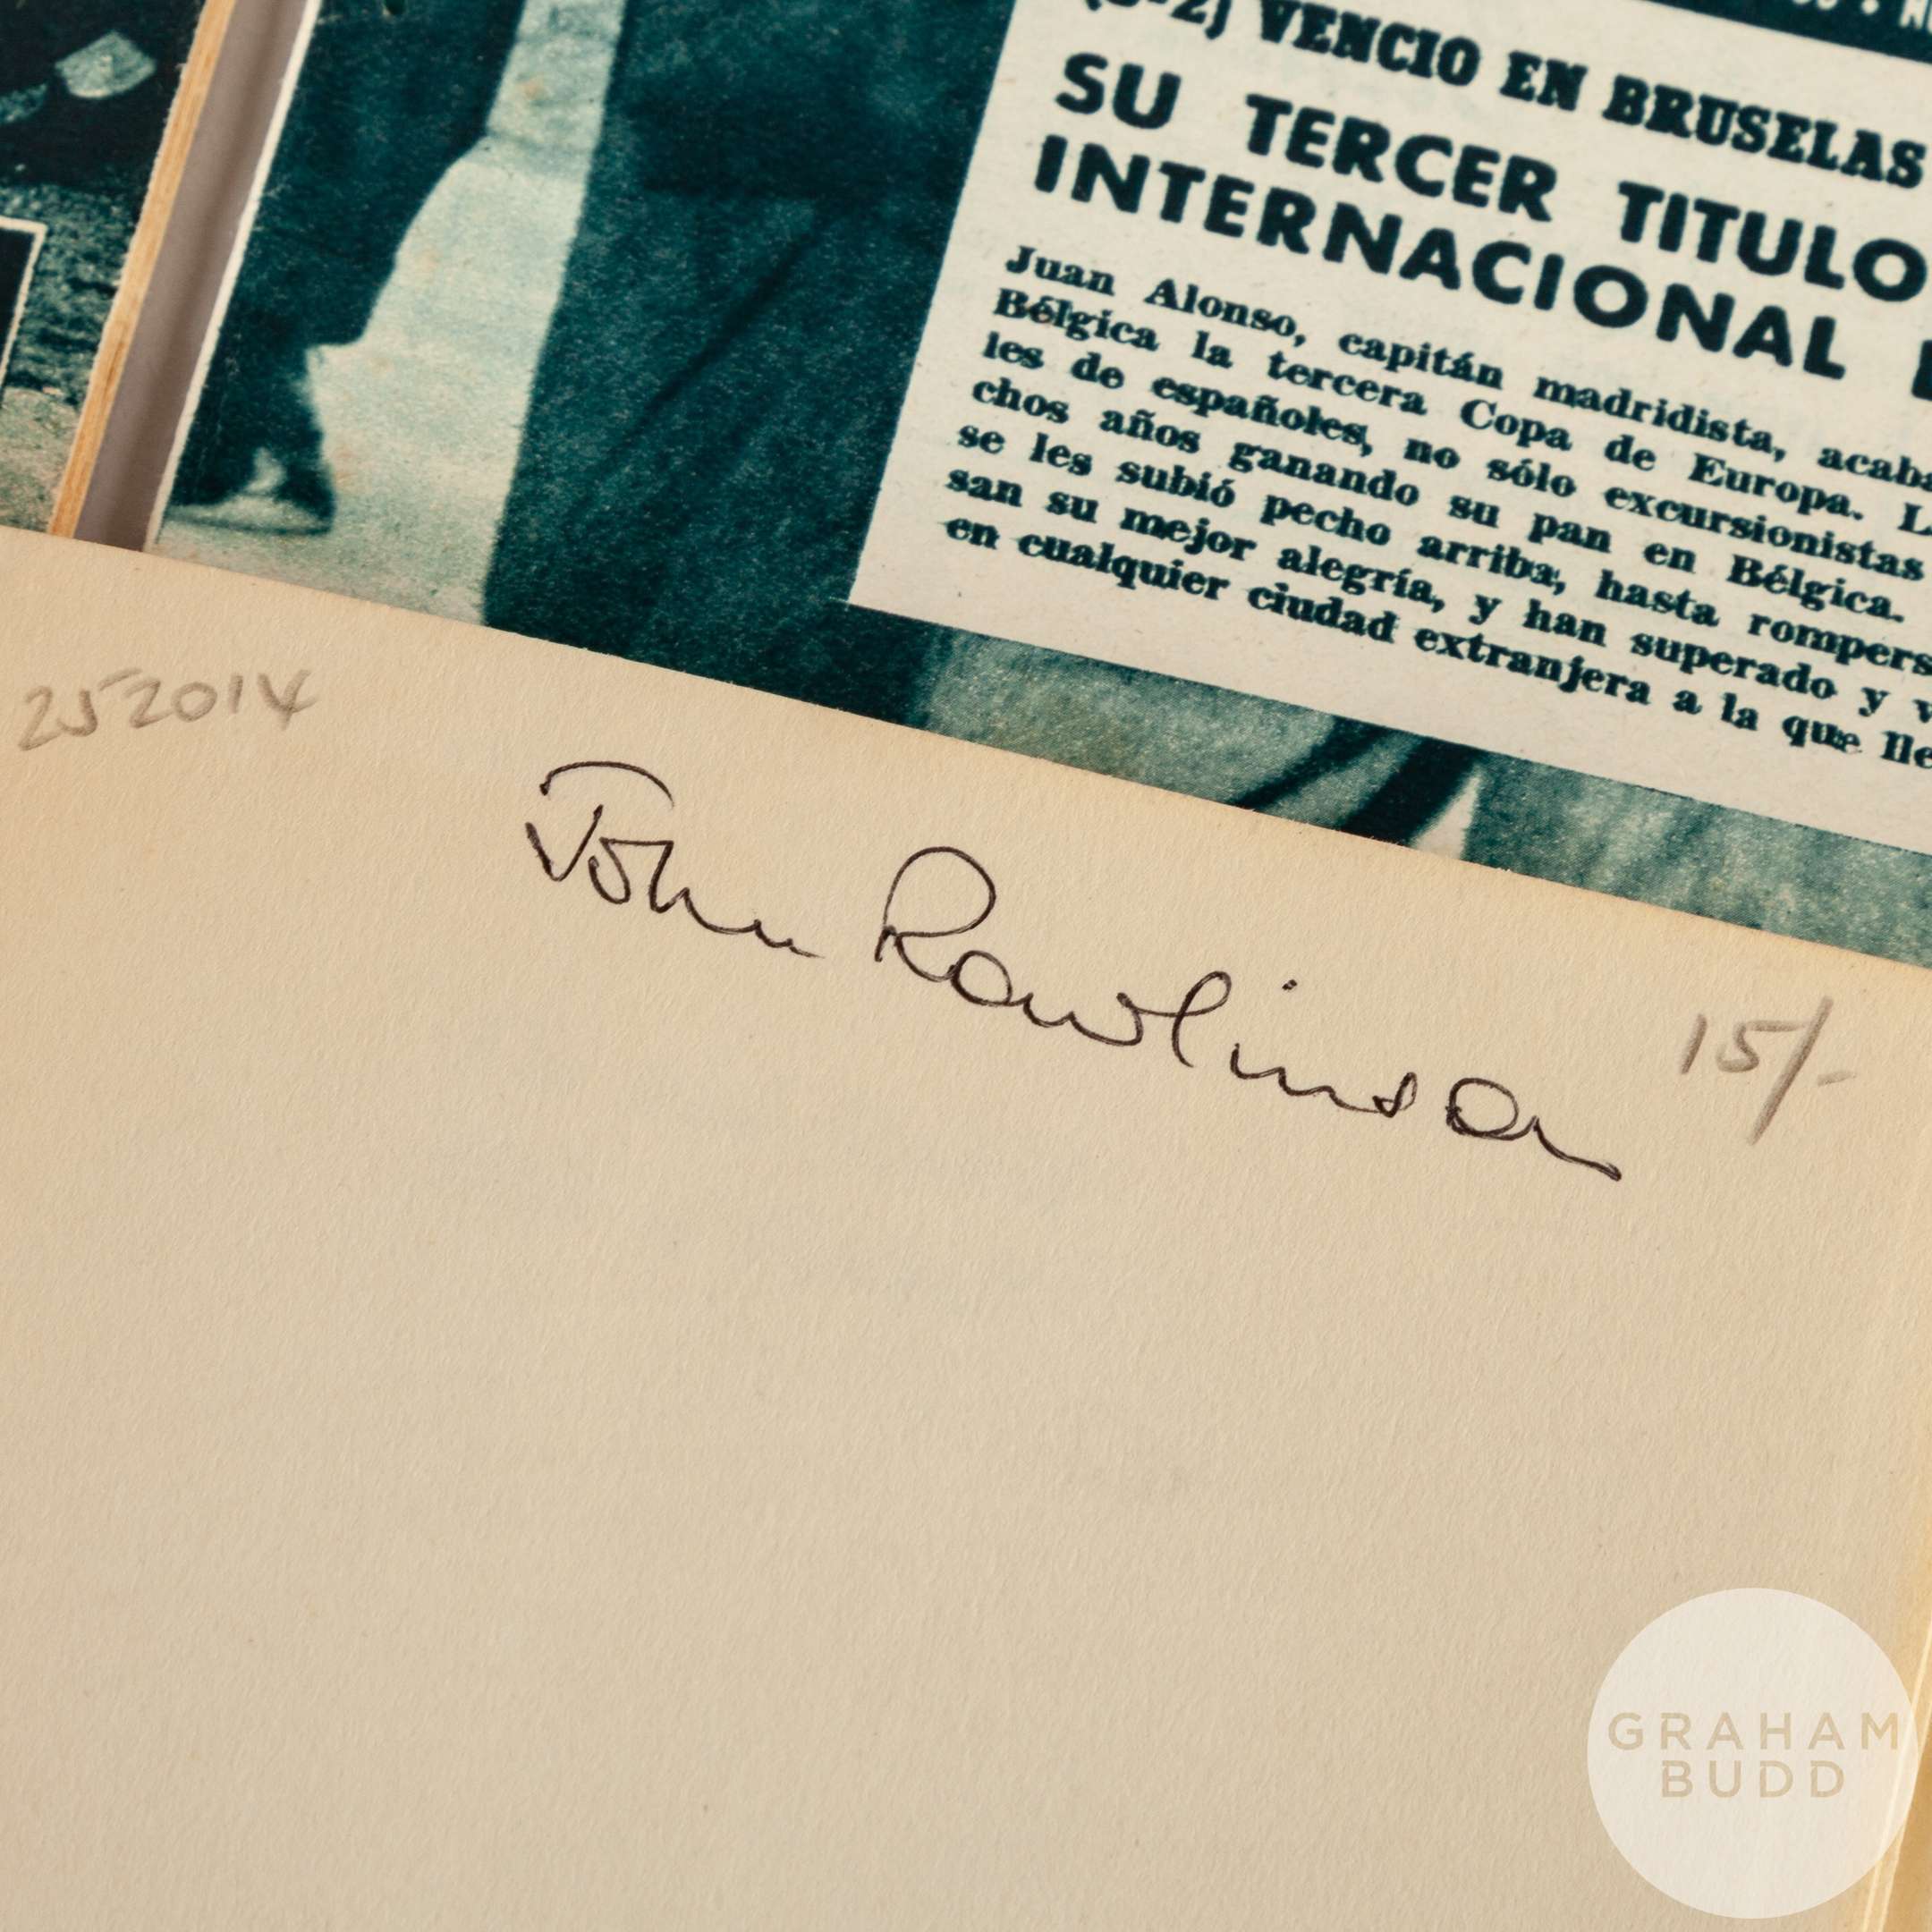 -2) VENCIO EN BRUSELAS
SU TERCER TITULO
INTERNACIONAL
Juan Alonso, capitán madridista, acaba
Bélgica la tercera Copa de Europa. L
les de españoles, no sólo excursionistas
chos años ganando su pan en Bélgica.
se les subió pecho arriba, hasta rompers
san su mejor alegría, y han superado y v
en cualquier ciudad extranjera a la que lle
252014
John Rawlinson
15/-
GRAHAM
BUDD